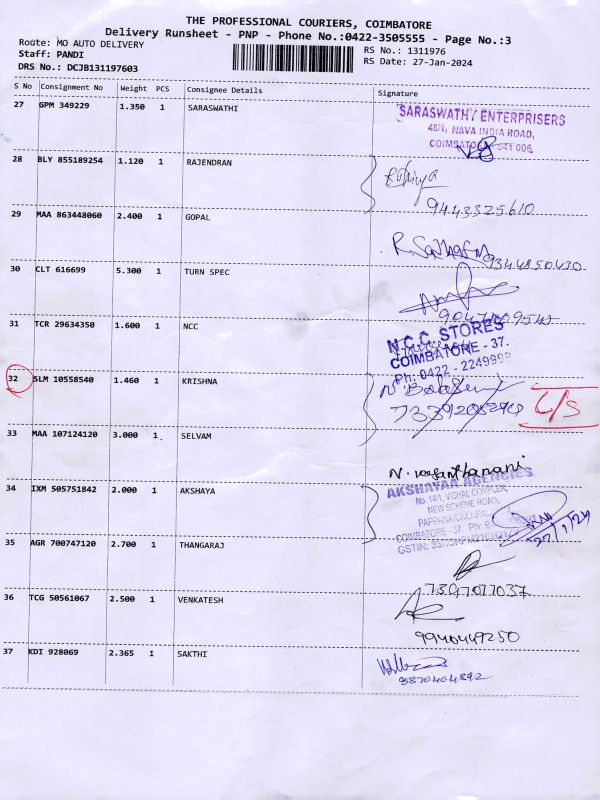 THE PROFESSIONAL COURIERS, COIMBATORE
Delivery Runsheet - PNP - Phone No.:0422-3505555 - Page No.:3
Route: MO AUTO DELIVERY
RS No.: 1311976
Staff: PANDI
RS Date: 27-Jan-2024
DRS No.: DCJB131197603
S No Consignment No Weight PCS Consignee Details Signature
27 GPM 349229 1.350 1 SARASWATHI
SARASWATHY ENTERPRISERS
48/1, NAVA INDIA ROAD,
COIMBATORE 641 006
28 BLY 855189254 1.120 1 RAJENDRAN
9443325610
29 MAA 863448060 2.400 1 GOPAL
9344850430
30 CLT 616699 5.300 1 TURN SPEC
31 TCR 29634350 1.600 1 NCC
N.C.C. STORES
COIMBATORE - 37.
Ph: 0422 -
32 SLM 10558540 1.460 1 KRISHNA
C/S
33 MAA 107124120 3.000 1 SELVAM
N. Vasanthamani
34 IXM 505751842 2.000 1 AKSHAYA
AKSHAYAA AGENCIES
No. 14/1, VISHAL COMPLEX,
NEW SCHEME ROAD,
COIMBATORE - 37. Ph:
GSTIN:
27/1/24
35 AGR 700747120 2.700 1 THANGARAJ
7347077037
36 TCG 50561067 2.500 1 VENKATESH
9940449250
37 KDI 928069 2.365 1 SAKTHI
8870404892